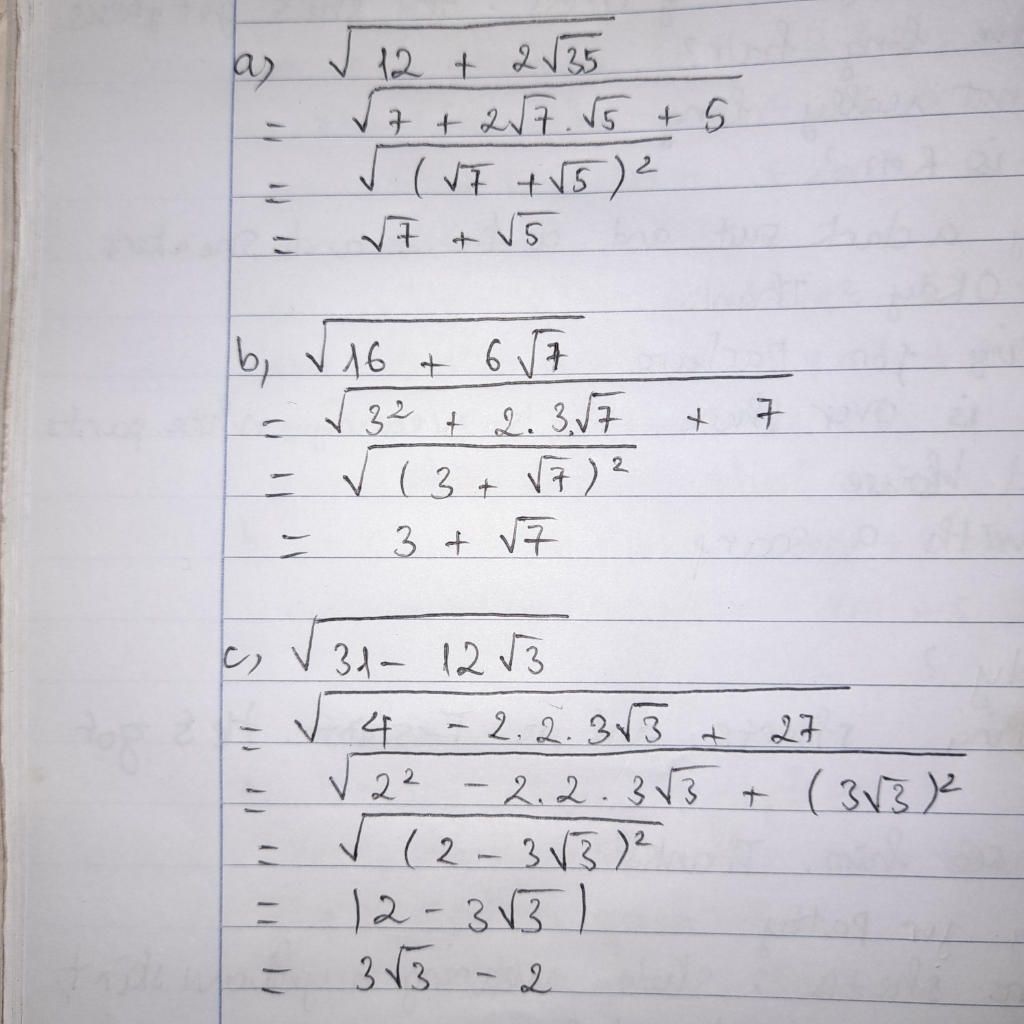 a) √(12 + 2√35)
= √(7 + 2√7.√5 + 5)
= √((√7 + √5)²)
= √7 + √5
b) √(16 + 6√7)
= √(3² + 2.3.√7 + 7)
= √((3 + √7)²)
= 3 + √7
c) √(31 - 12√3)
= √(4 - 2.2.3√3 + 27)
= √(2² - 2.2.3√3 + (3√3)²)
= √((2 - 3√3)²)
= |2 - 3√3|
= 3√3 - 2